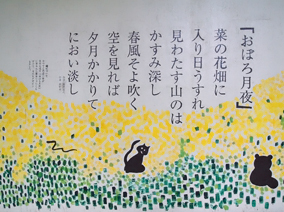 『おぼろ月夜』
菜の花畑に
入り日うすれ
見わたす山のは
かすみ深し
春風そよ吹く
空を見れば
夕月かかりて
におい淡し